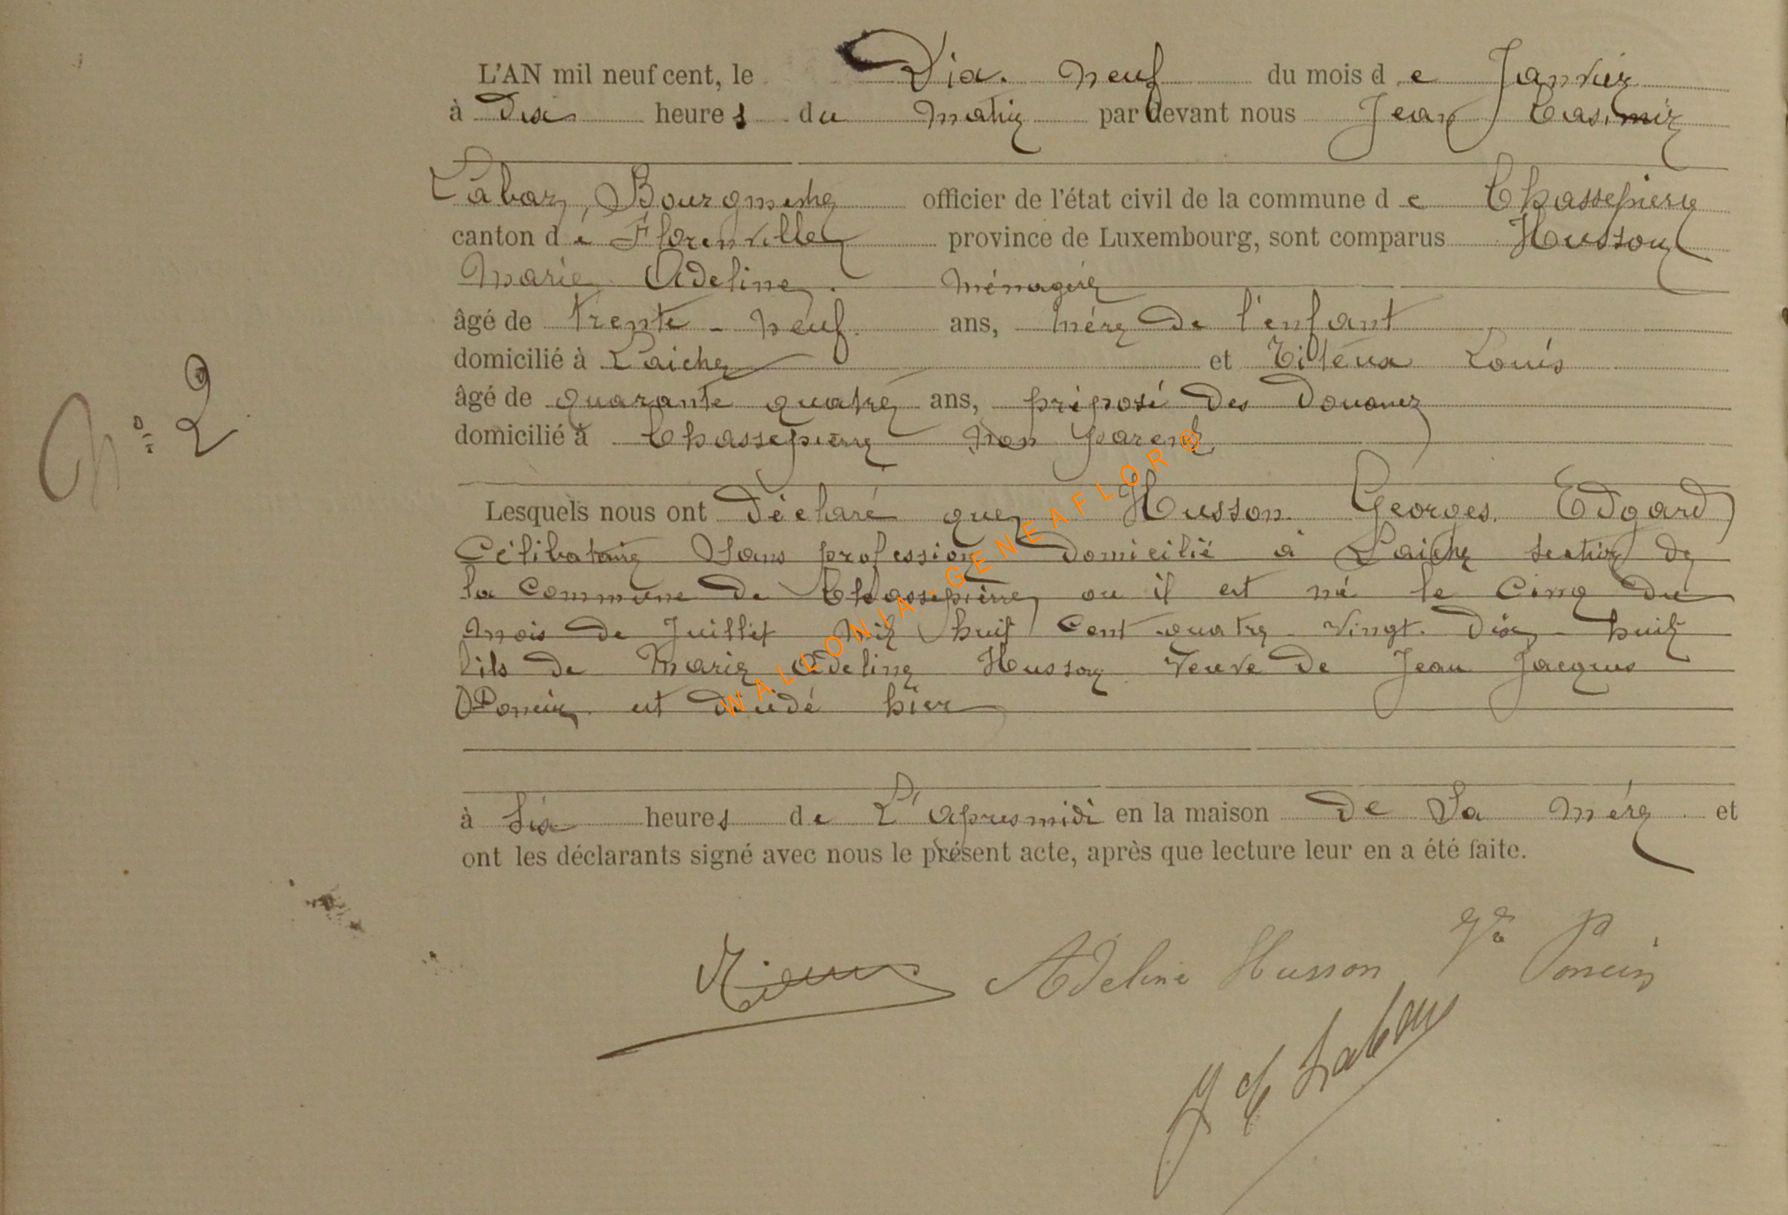 L'AN mil neuf cent, le Dix neuf du mois d e Janvier
à Dix heures du matin par devant nous Jean Casimir
Labar, Bourgmestre officier de l'état civil de la commune d e Chassepierre
canton de Florenville province de Luxembourg, sont comparus Husson
Marie Adeline. Ménagère
âgé de trente-neuf ans, mère de l'enfant
domicilié à Laiche et Louis
âgé de quarante quatre ans, préposé des Douanes
domicilié à Chassepierre Non parent
N° 2
Lesquels nous ont déclaré que Husson Georges Edgard
Célibataire sans profession domicilié à Laiche section de
la Commune de Chassepierre ou il est né le Cinq du
mois de Juillet Mil huit Cent quatre Vingt Dix huit
fils de Marie Adeline Husson Veuve de Jean Jacques
Poncin est décédé hier
à six heures de L'apresmidi en la maison de Sa mère et
ont les déclarants signé avec nous le présent acte, après que lecture leur en a été faite.
Adeline Husson Ve Poncin
J C Labar
WALLONIA-GENEAFLOR©